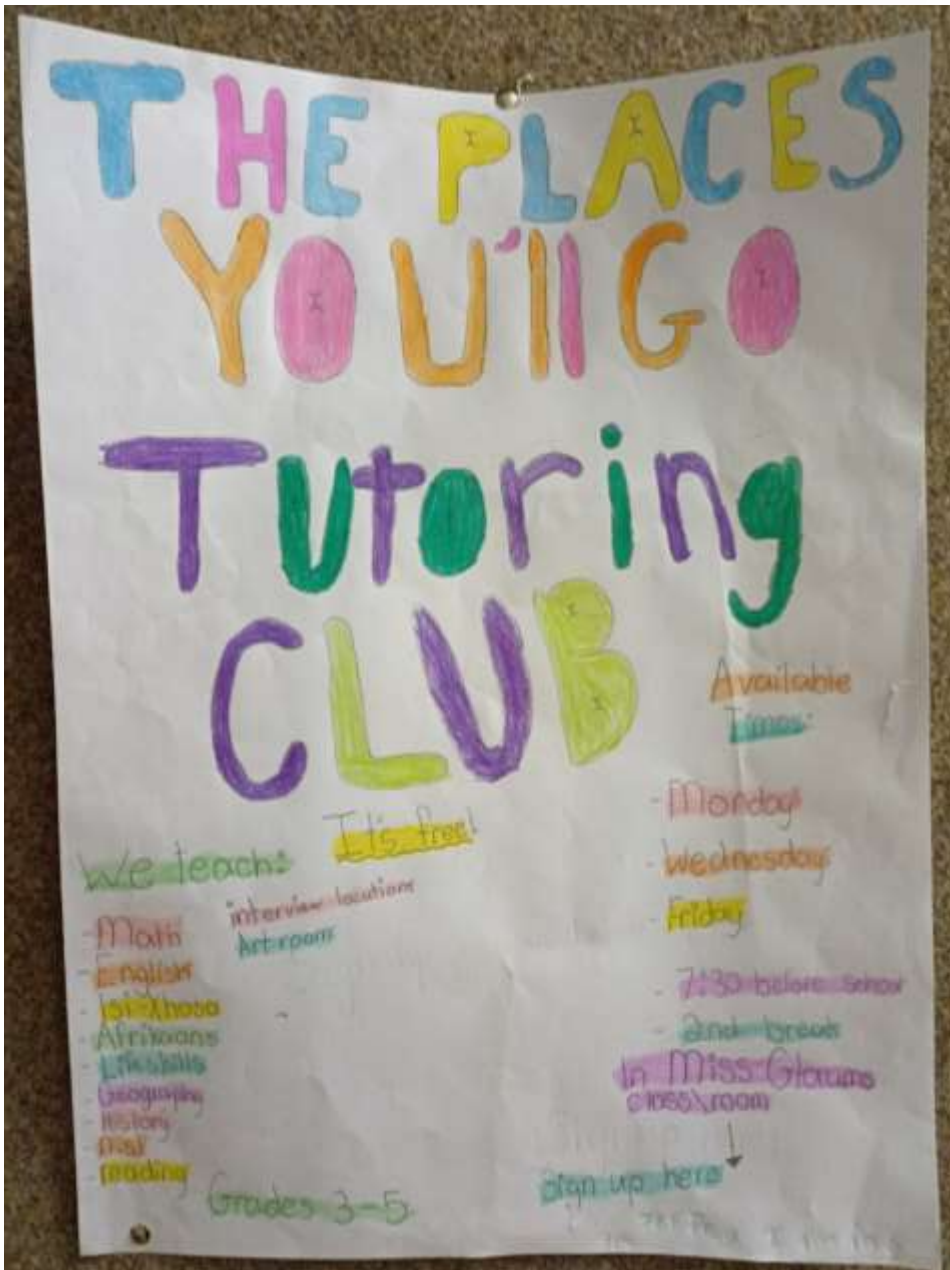 THE PLACES
YOU'll GO
Tutoring
CLUB
It's free!
We teach:
- Math
- English
- Isi-Xhosa
- Afrikaans
- Lifeskills
- Geography
- History
- reading
interview location:
Art room
Grades 3-5
Available
Times:
- Monday:
- Wednesday:
- Friday
- 7:30 before school
- 2nd break
In Miss
classroom
Sign up here